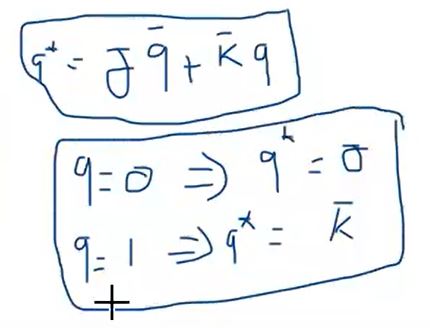 q* = J q̄ + K̄ q
q = 0 ⇒ q* = J
q = 1 ⇒ q* = K̄